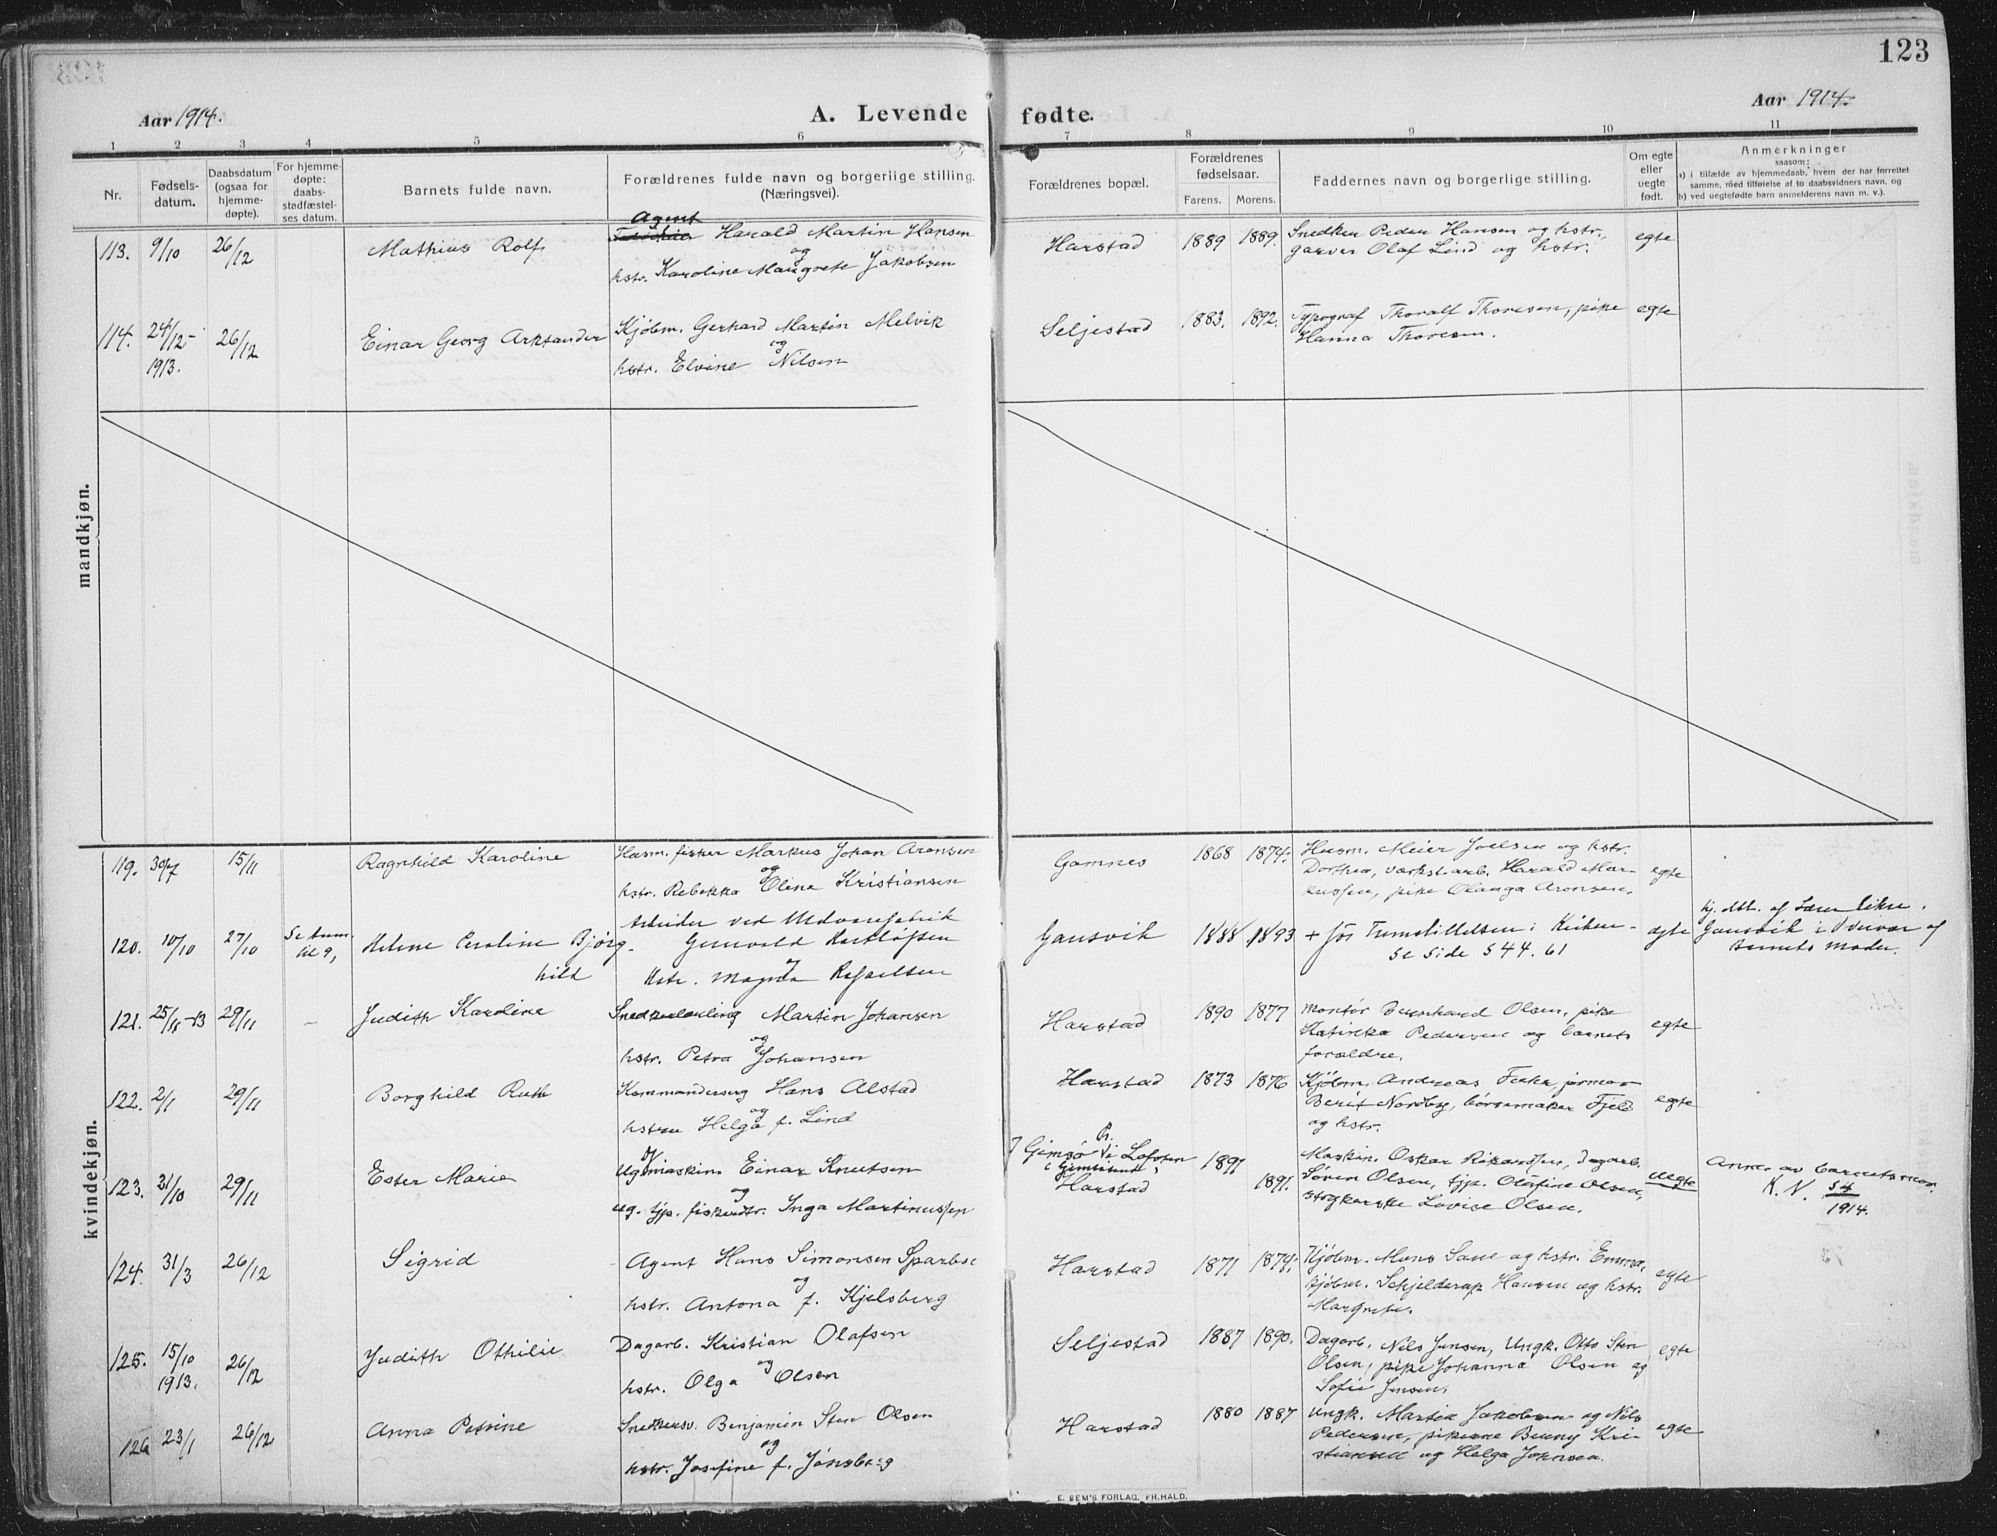 123
Aar 1914.
A. Levende fødte.
Aar 1914.
1 2 3 4 5 6 7 8 9 10 11
Nr.
Fødsels-
datum.
Daabsdatum
(ogsaa for
hjemme-
døpte).
For hjemme-
døpte:
daabs-
stadfæstel-
ses datum.
Barnets fulde navn.
Forældrenes fulde navn og borgerlige stilling.
(Næringsvei).
Forældrenes bopæl.
Forældrenes
fødselsaar.
Farens. Morens.
Faddernes navn og borgerlige stilling.
Om egte
eller
uegte
født.
Anmerkninger
saasom:
a) i tilfælde av hjemmedaab, hvem der har forrettet
samme, med tilføielse af to daabsvidners navn, og
b) ved uegtefødte barn anmelderens navn m. v.).
mandkjøn.
Agent
113. 9/10 26/12 Mathias Rolf Harald Martin Hansen Harstad 1889 1889. Snedker Peder Hansen og hstr., egte
og
hstr. Karoline Margrete Jakobsen garver Olaf Lind og hstr.
114. 24/12- 26/12 Einar Georg Aleksander Kjøbm. Gerhard Martin Melvik Seljestad 1883. 1892. Typograf Thoralf Thoresen, pike egte
1913. og
hstr. Elvine Nilsen Hanna Thoresen.
kvindekjøn.
119. 30/7 15/11 Ragnhild Karoline Husm. fisker Markus Johan Aronsen Gamnes 1868 1874. Husm. Meier Joelsen og hstr. egte
og
hstr. Rebekka Oline Kristiansen Dorthea, værkst.arb. Harald Mar-
kussen, pike Olanga Aronsen.
120. 10/10 27/10 Helene Peroline Bjørg- Arbeider ved Uldvarefabrik Gansvik 1888 1893 + før Fremstillelsen i Kirken - egte hj. dbt. af
hild Gunvald Gansvik
hstr. Magda Rafaelsen Se Side 544. 61 barnets moder.
121. 25/11-13 29/11 - Judith Karoline Snedkerlærling Martin Johansen Harstad 1890 1877 Montør Bernhard Olsen, pike egte
og
hstr. Petra Johansen Pedersen og barnets
forældre.
122. 2/1 29/11 Borghild Ruth Kommandersg Hans Alstad Harstad 1873 1876 Kjøbm. Andreas jormor egte
og
hstru Helga f. Lind Berit Nordby, børsemaker Fjeld
og hstr.
123. 31/10 29/11 Ester Marie Einar Knutsen Gimsø i Lofoten 1891 Maskin. Oskar Rikardsen, dagarb. uegte Anm. av barnets mor.
og
ug. tjp. fiskerdtr. Inga Martinussen Harstad 1891. Søren Olsen, tjp. Olafine Olsen, K. N. 54/1914.
strykerske Lovise Olsen.
124. 31/3 26/12 Sigrid Agent Hans Simonsen Sparboe Harstad 1871 1874. Kjøbm. Mons Sane og hstr. Emma, egte
og
hstr. Antona f. Kjelsberg kjøbm. Schjelderup Hansen og hstr.
Margrete.
125. 15/10 26/12 Judith Othilie Dagarb. Kristian Olafsen Seljestad 1887 1890. Dagarb. Nils Jensen, Ungk. Otto Sten egte
1913. og
hstr. Olga Olsen Olsen, pike Johanna Olsen og
Sofie Jensen.
126 23/1 26/12 Anna Petrine Snedkersv. Benjamin Sten Olsen Harstad 1880 1887 Ungk. Martin Jakobsen og Nils egte
og
hstr. Josefine f. Jønsberg Pedersen, pikerne Benny Kri-
stiansen og Helga Johnsen.
E. SEM'S FORLAG, FR.HALD.